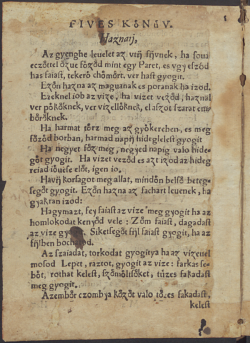 FIVES KŐNŐV.
Haznai,
Az gyenghe leuelet az vtifi fűvnek, ha soua
eczőttel őzue főződ mint egy Paret, es vgy elződ
has faiast, tekerő chőmőrt, ver hast gyogit.
Ezőn hazna az maguanak es poranak ha izod.
Ezeknel iob az vize, ha vizet veződ, haznal
ver pőkőknek, ver vizellőknek, el aszot szarat em-
bőrőknek.
Ha harmat főzz meg az győkerében, es meg
főrőd borban, harmad napi hideglelest gyogit
Ha negyet főz meg, negyed napig valo hide-
gőt gyogit. Ha vizet veződ es azt izod az hideg
reiad iőuese előt, igen io,
Havi korsagot meg allat, mindőn belső betege-
segőt gyogit. Ezőn hazna az sachart leuenek, ha
gyakran izod:
Hagymazt, sey faiast az vize meg gyogit ha az
homlokodat kenyőd vele: Zőm faiast, dagadast
az vize gyo Siketsegőt ful faiast gyogit, ha az
fűlben bochatod.
Az szaiadat, torkodat gyogitya ha az vizenel
mosod Lepet, raztot, gyogit az vize: farkas se-
bőt, rothat kelest, szőmőlcsőket, tüzes fakadast
meg gyogit.
Azembőr czombia kőzőt valo iő, es fakadast,
kelest